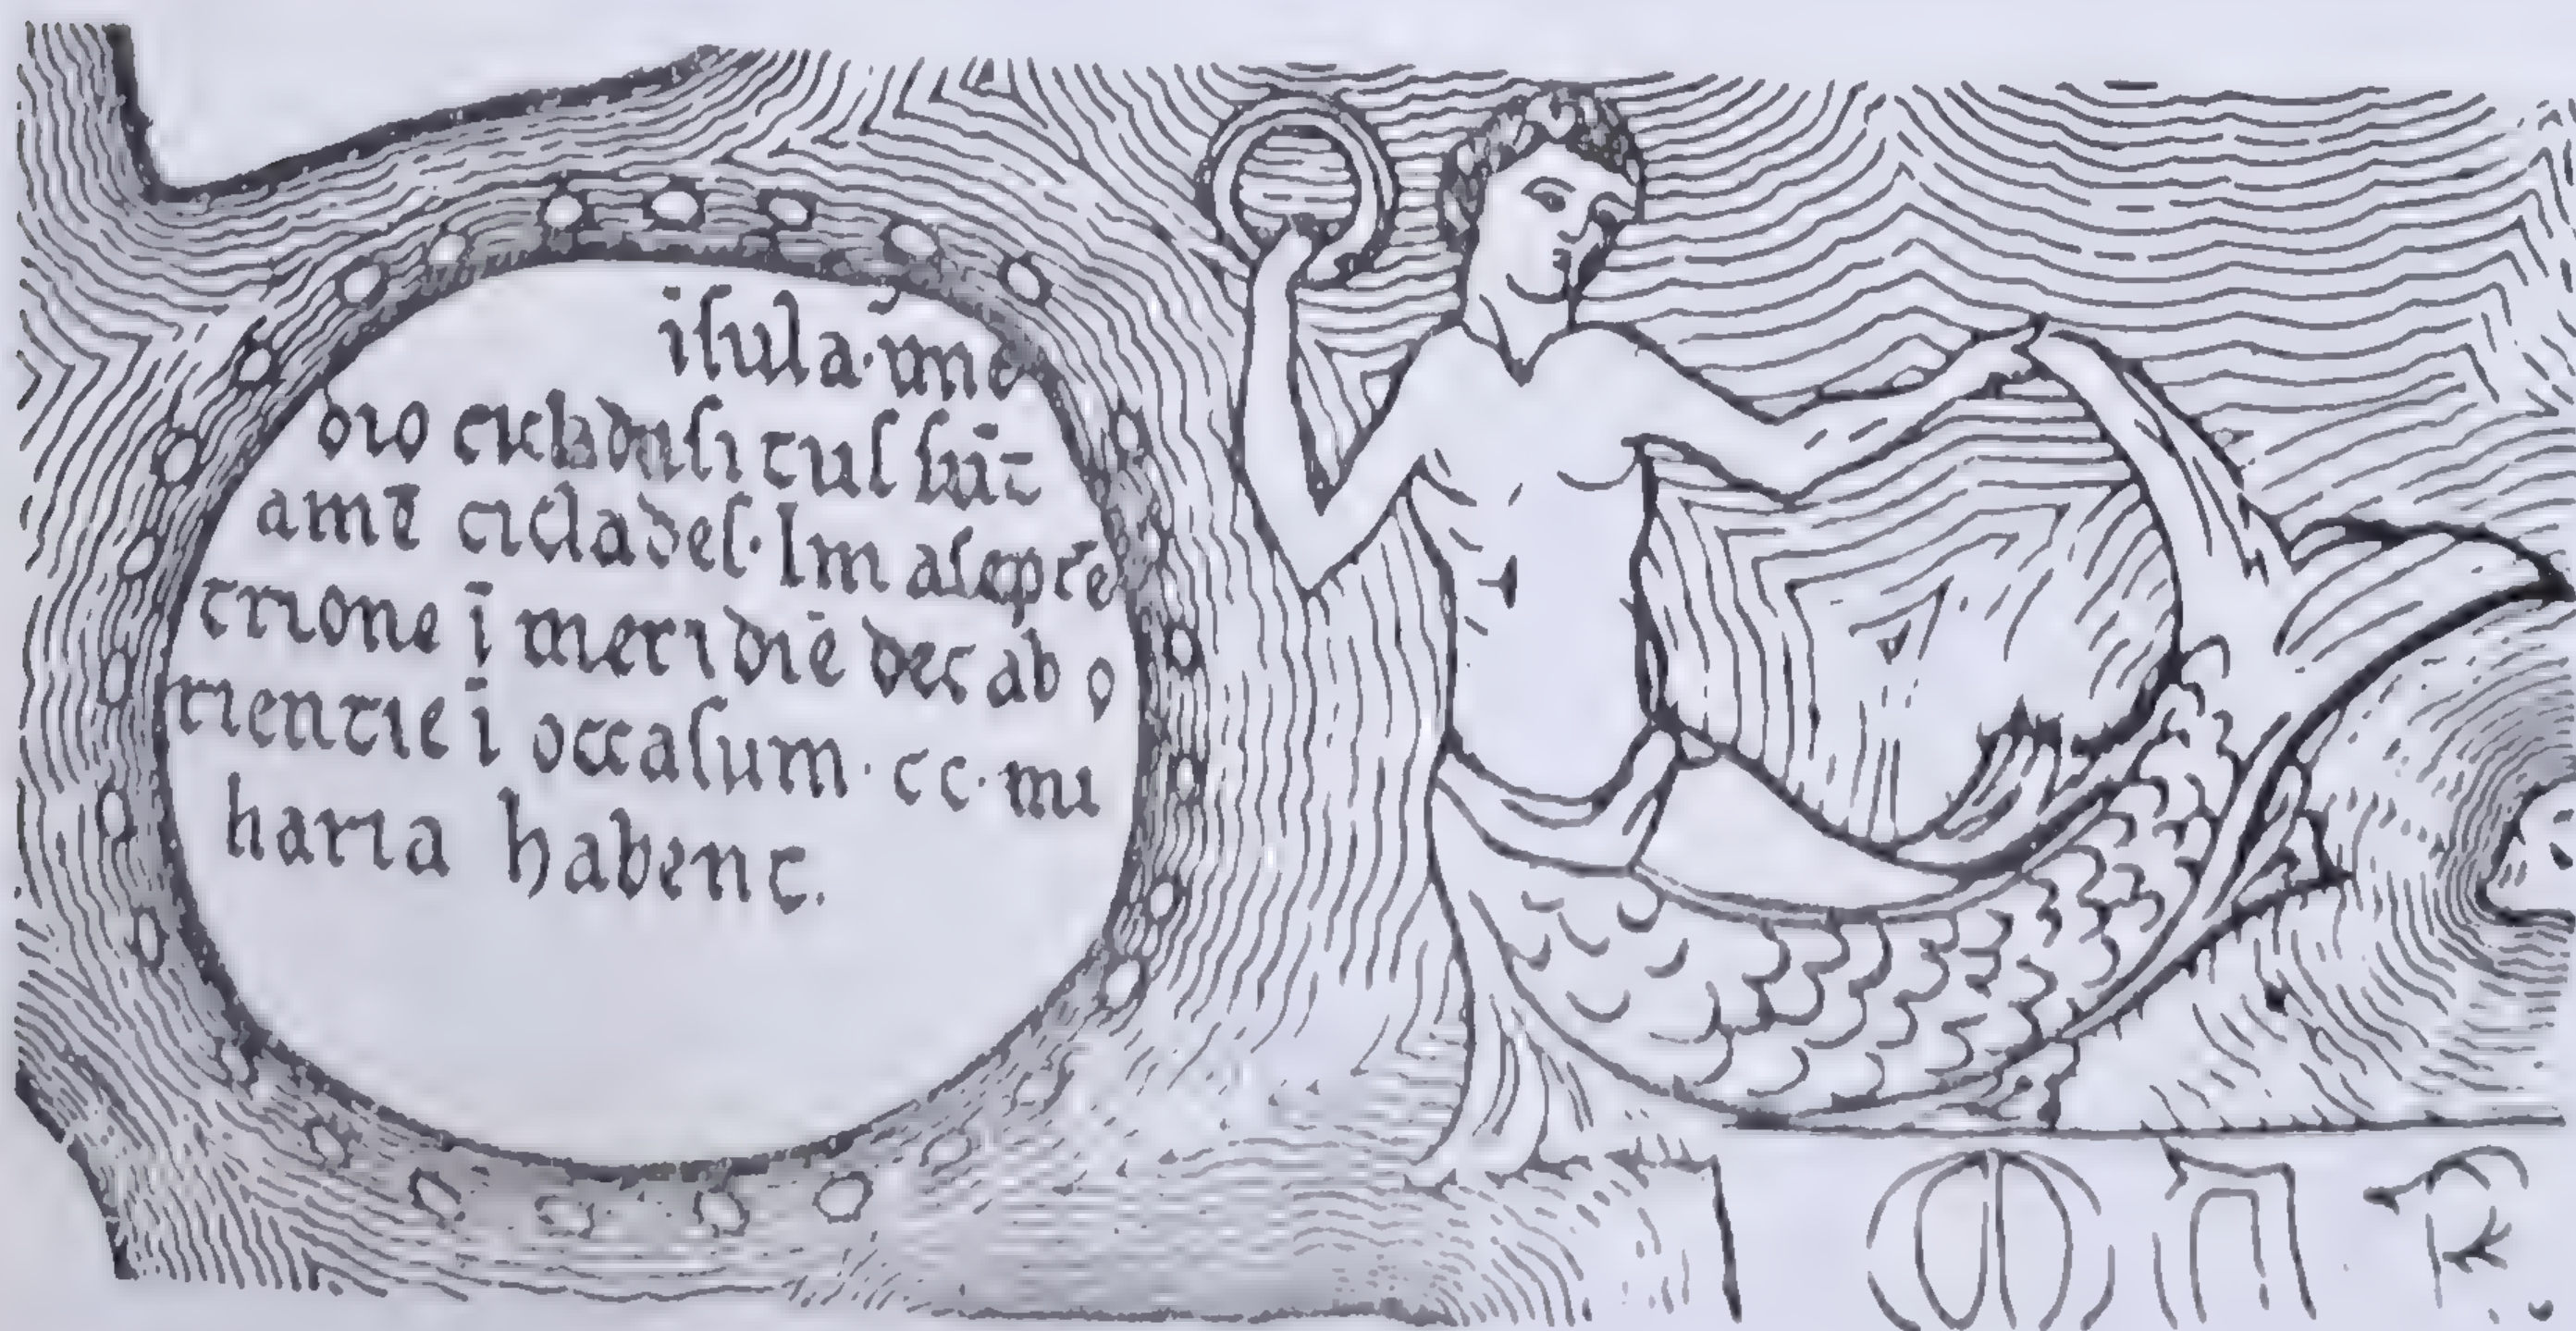 īſula·ime
dio cicladu ſi tuſ ſūt
amē cicladeſ· Im aſepte
trione ī meridiē dec ab o
rientie ī occaſum · cc · mi
haria habent.